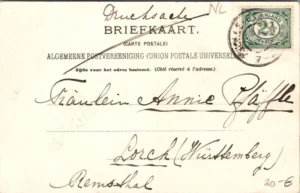 Drucksache
NL
BRIEFKAART.
(CARTE POSTALE)
ALGEMEENE POSTVEREENIGING (UNION POSTALE UNIVERSELLE)
Zijde voor het adres bestemd. (Côté réservé à l'adresse.)
Fräulein Annie Pfäffle
Lorch (Württemberg)
Remsthal
20-E